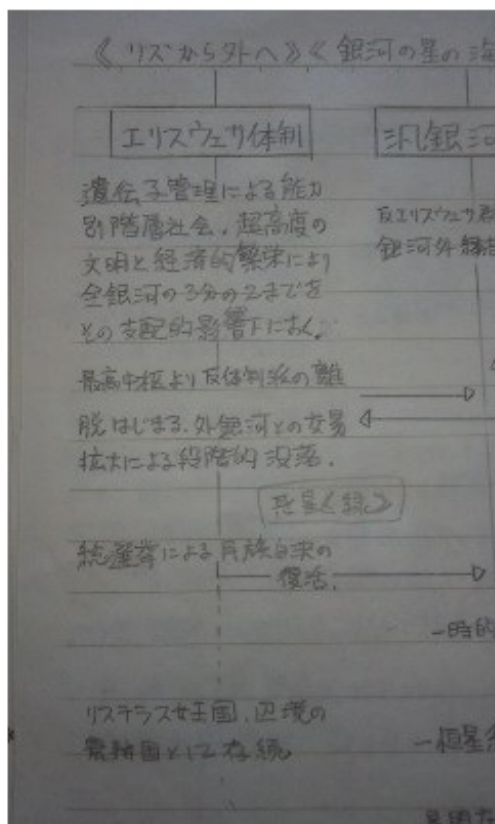 《リズから外へ》《銀河の星の海
エリスウェサ体制
汎銀河
遺伝子管理による能力
別階層社会、超高度の
文明と経済的繁栄により
全銀河の3分の2までを
その支配的影響下におく。
反エリスウェサ
銀河外縁
最高中枢より反体制派の離
脱はじまる、外銀河との交易
拡大による段階的没落。
総選挙による民族自決の
復活。
一時的
リステラス女王国、辺境の
として存続
一恒星